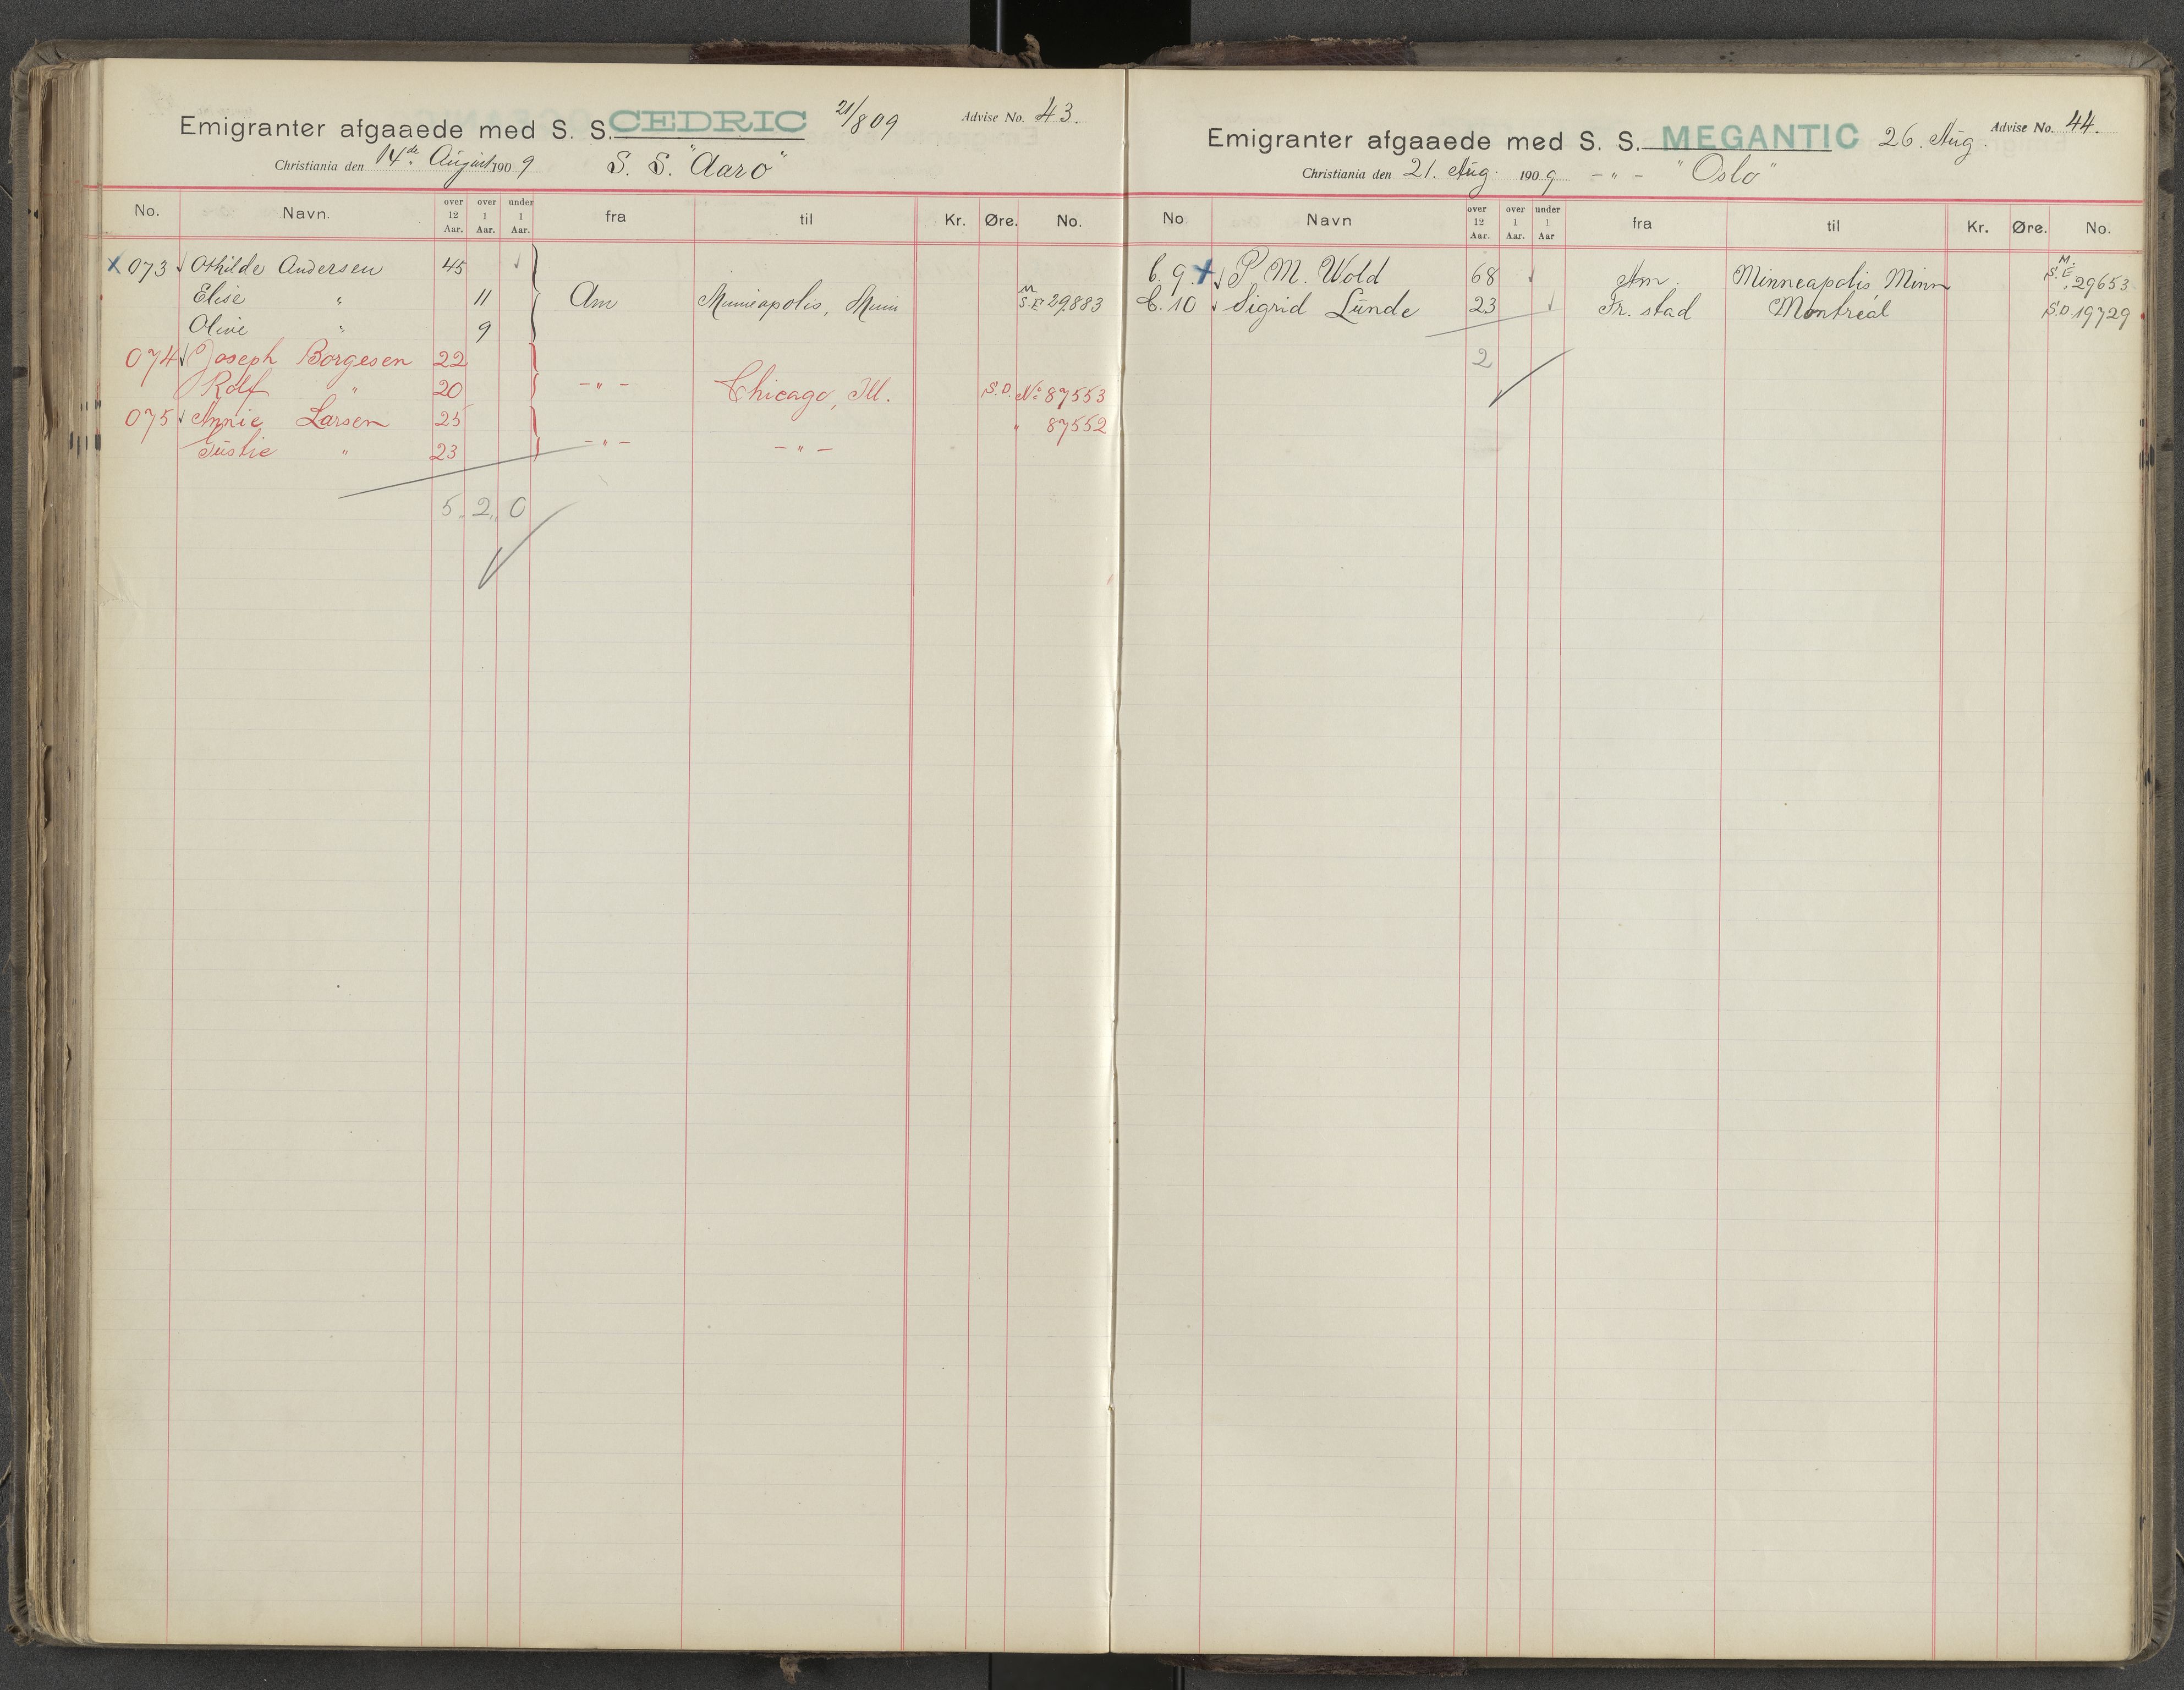 Emigranter afgaaede med S. S. CEDRIC 21/8 09 Advise No. 43.
Christiania den 14de August 1909 S. S. "Aaro"
No. Navn. over 12 Aar. over 1 Aar. under 1 Aar. fra til Kr. Øre. No.
X 073 Othilde Andersen 45
Elise " 11 Am Minneapolis, Minn M S.E. 29883
Olive " 9
074 Joseph Borgesen 22
Rolf " 20 - " - Chicago, Ill. S.D. No 87553
075 Annie Larsen 25 " 87552
" 23 - " - - " -
5. 2. 0
Emigranter afgaaede med S. S. MEGANTIC 26. Aug. Advise No. 44.
Christiania den 21. Aug. 1909 - " - "Oslo"
No Navn over 12 Aar. over 1 Aar. under 1 Aar fra til Kr. Øre. No.
C. 9. + P. M. Wold 68 Am. Minneapolis Minn M. S.E. 29653
C. 10 Sigrid Lunde 23 Fr. stad Montreal S.D. 19729
2